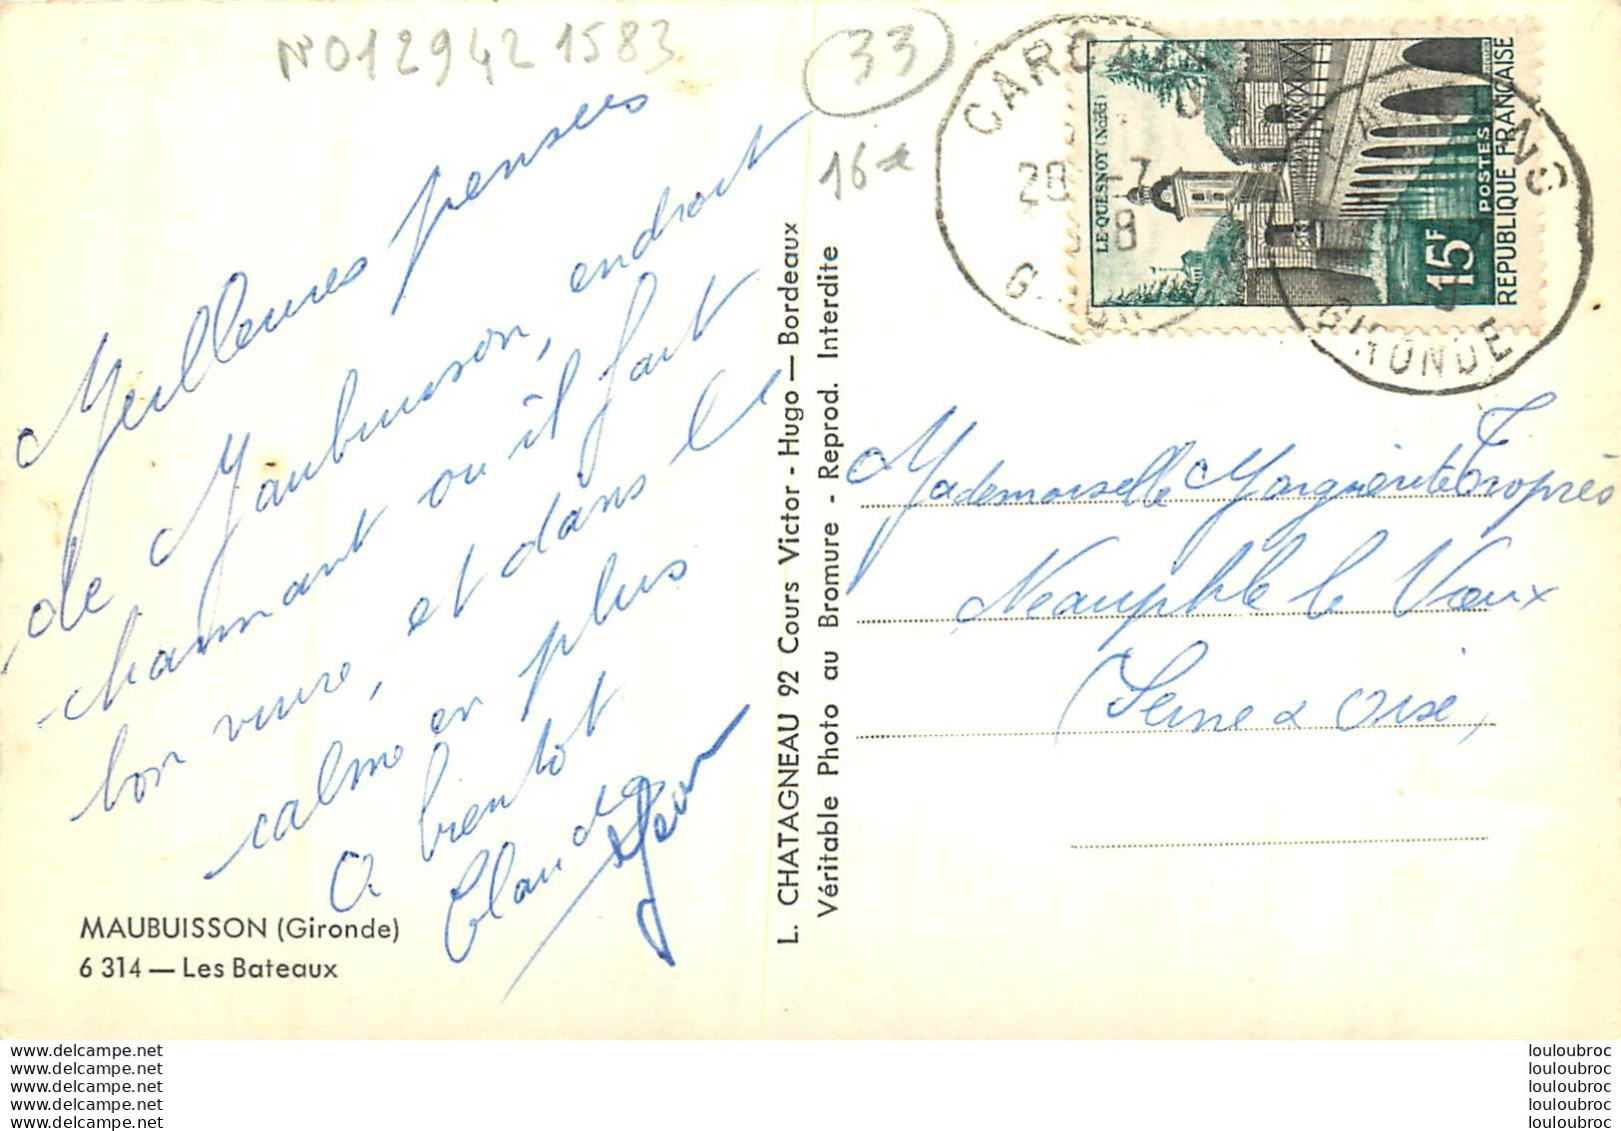 N° 0129421583
33
16e
Meilleures pensées
de Maubuisson, endroit
charmant ou il fait
bon vivre, et dans le
calme en plus
a bientot
Claude
MAUBUISSON (Gironde)
6 314 — Les Bateaux
L. CHATAGNEAU 92 Cours Victor - Hugo — Bordeaux
Véritable Photo au Bromure - Reprod. Interdite
28 -7
GIRONDE
LE QUESNOY (Nord)
15F
POSTES
REPUBLIQUE FRANÇAISE
Mademoiselle Marguerite Troprès
Neauphle le Vieux
(Seine & Oise)
www.delcampe.net
www.delcampe.net
www.delcampe.net
www.delcampe.net
www.delcampe.net
louloubroc
louloubroc
louloubroc
louloubroc
louloubroc